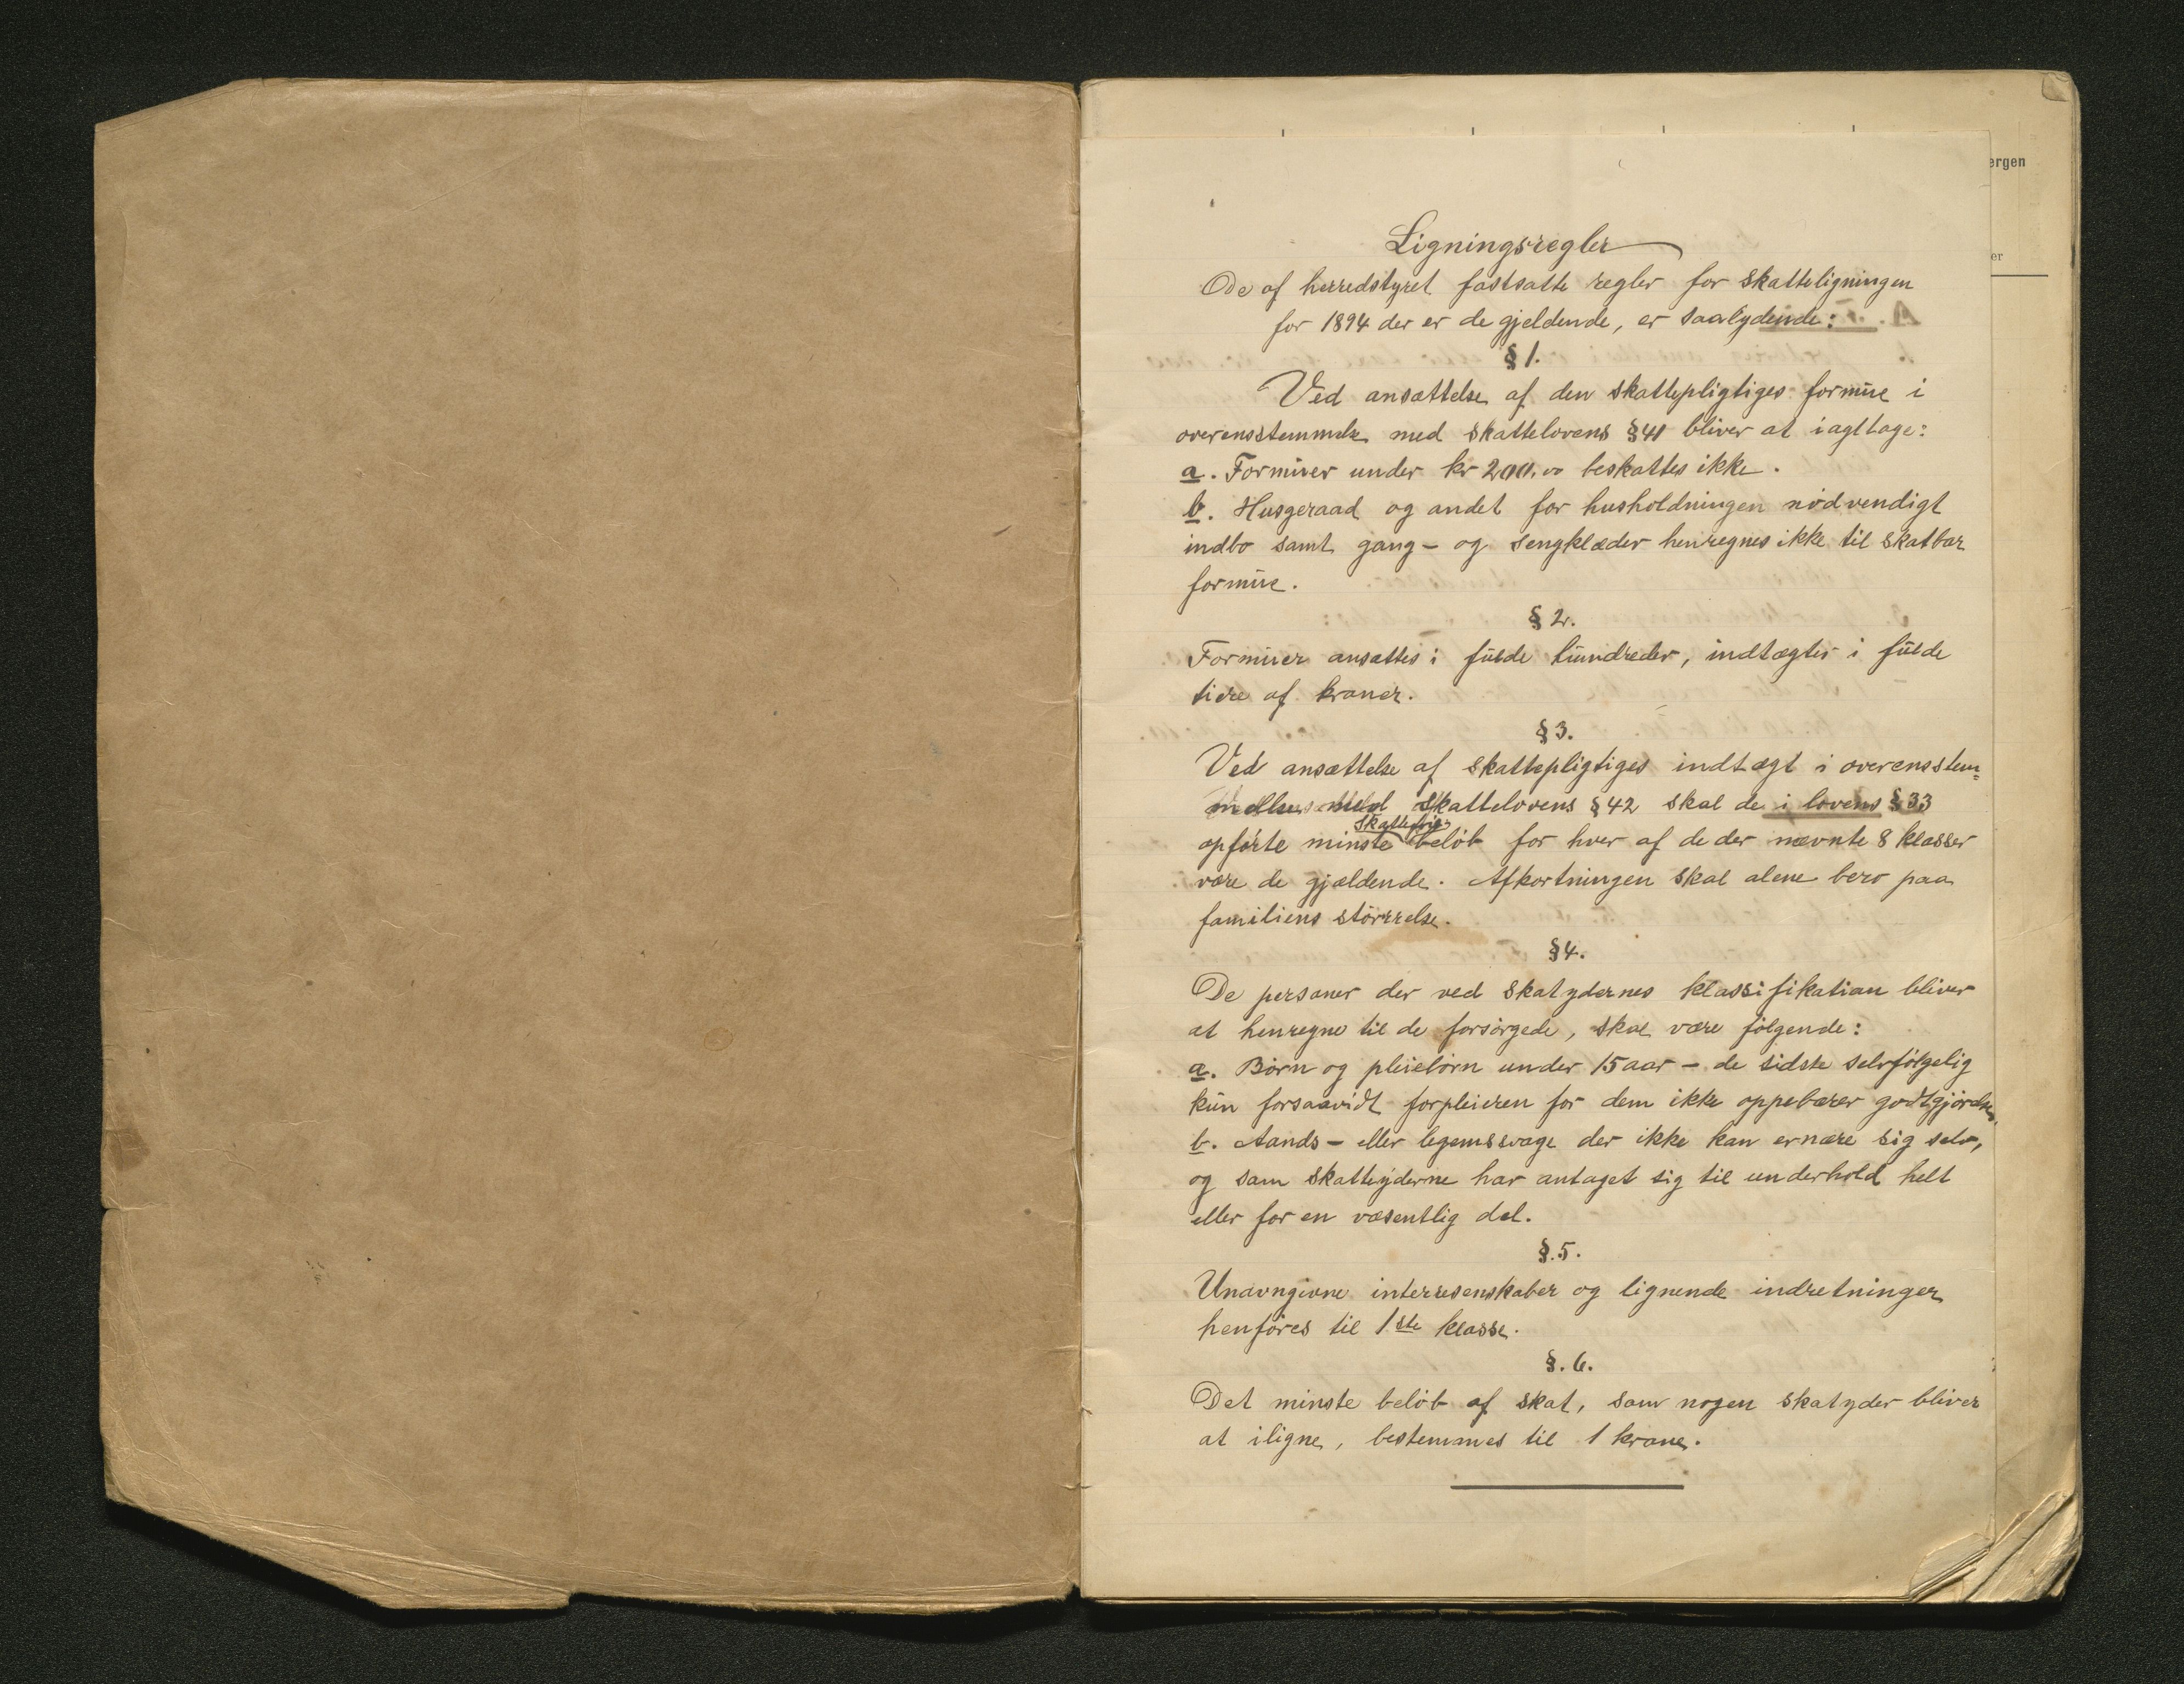 Ligningsregler
De af herredstyret fastsatte regler for skatteligningen
for 1894 der er de gjeldende, er saalydende:
§ 1.
Ved ansættelse af den skattepligtiges formue i
overensstemmelse med skattelovens § 41 bliver at iagttage:
a. Formuer under kr 200.00 beskattes ikke.
b. Husgeraad og andet for husholdningen nödvendigt
indbo samt gang- og sengklæder henregnes ikke til skatbar
formue.
§ 2.
Formuer ansættes i fulde hundreder, indtægter i fulde
tiere af kroner.
§ 3.
Ved ansættelse af skattepligtiges indtægt i overensstem=
melse med skattelovens § 42 skal de i lovens § 33
opførte minste skattefrie beløb for hver af de der nævnte 8 klasser
være de gjældende. Afkortningen skal alene bero paa
familiens störrelse.
§ 4.
De personer der ved skatydernes klassifikation bliver
at henregne til de forsörgede, skal være fölgende:
a. Börn og pleiebörn under 15 aar - de sidste selvfölgelig
kun forsaavidt forpleieren for dem ikke oppebærer godtgjörelse.
b. Aands- eller legemssvage der ikke kan ernære sig selv,
og som skatteyderne har antaget sig til underhold helt
eller for en væsentlig del.
§. 5.
Unavngivne interresenskaber og lignende indretninger
henföres til 1ste klasse.
§. 6.
Det minste belöb af skat, som nogen skatyder bliver
at iligne, bestemmes til 1 krone.
ergen
er